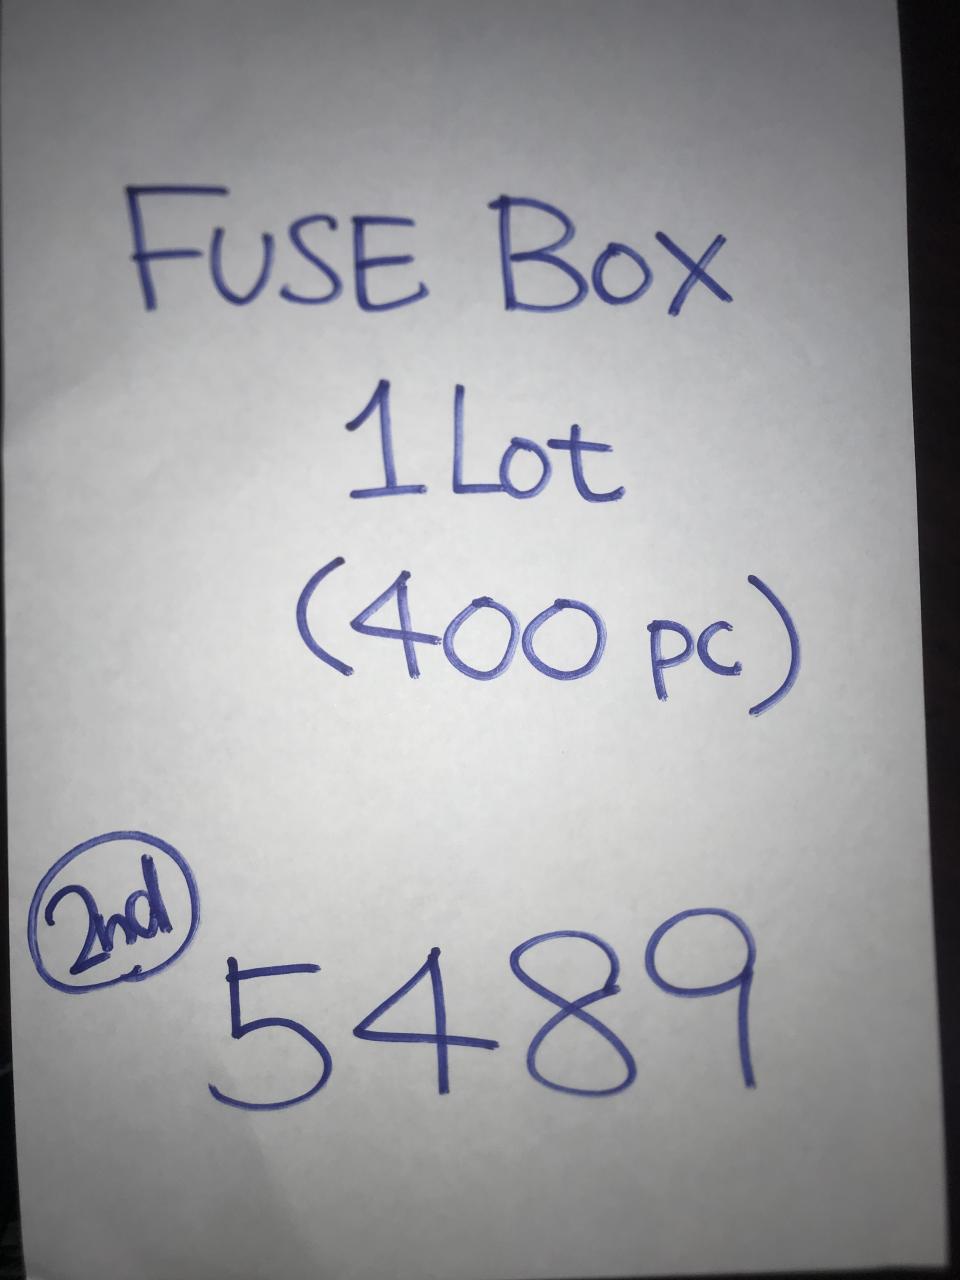 FUSE BOX
1 Lot
(400 pc)
2nd
5489